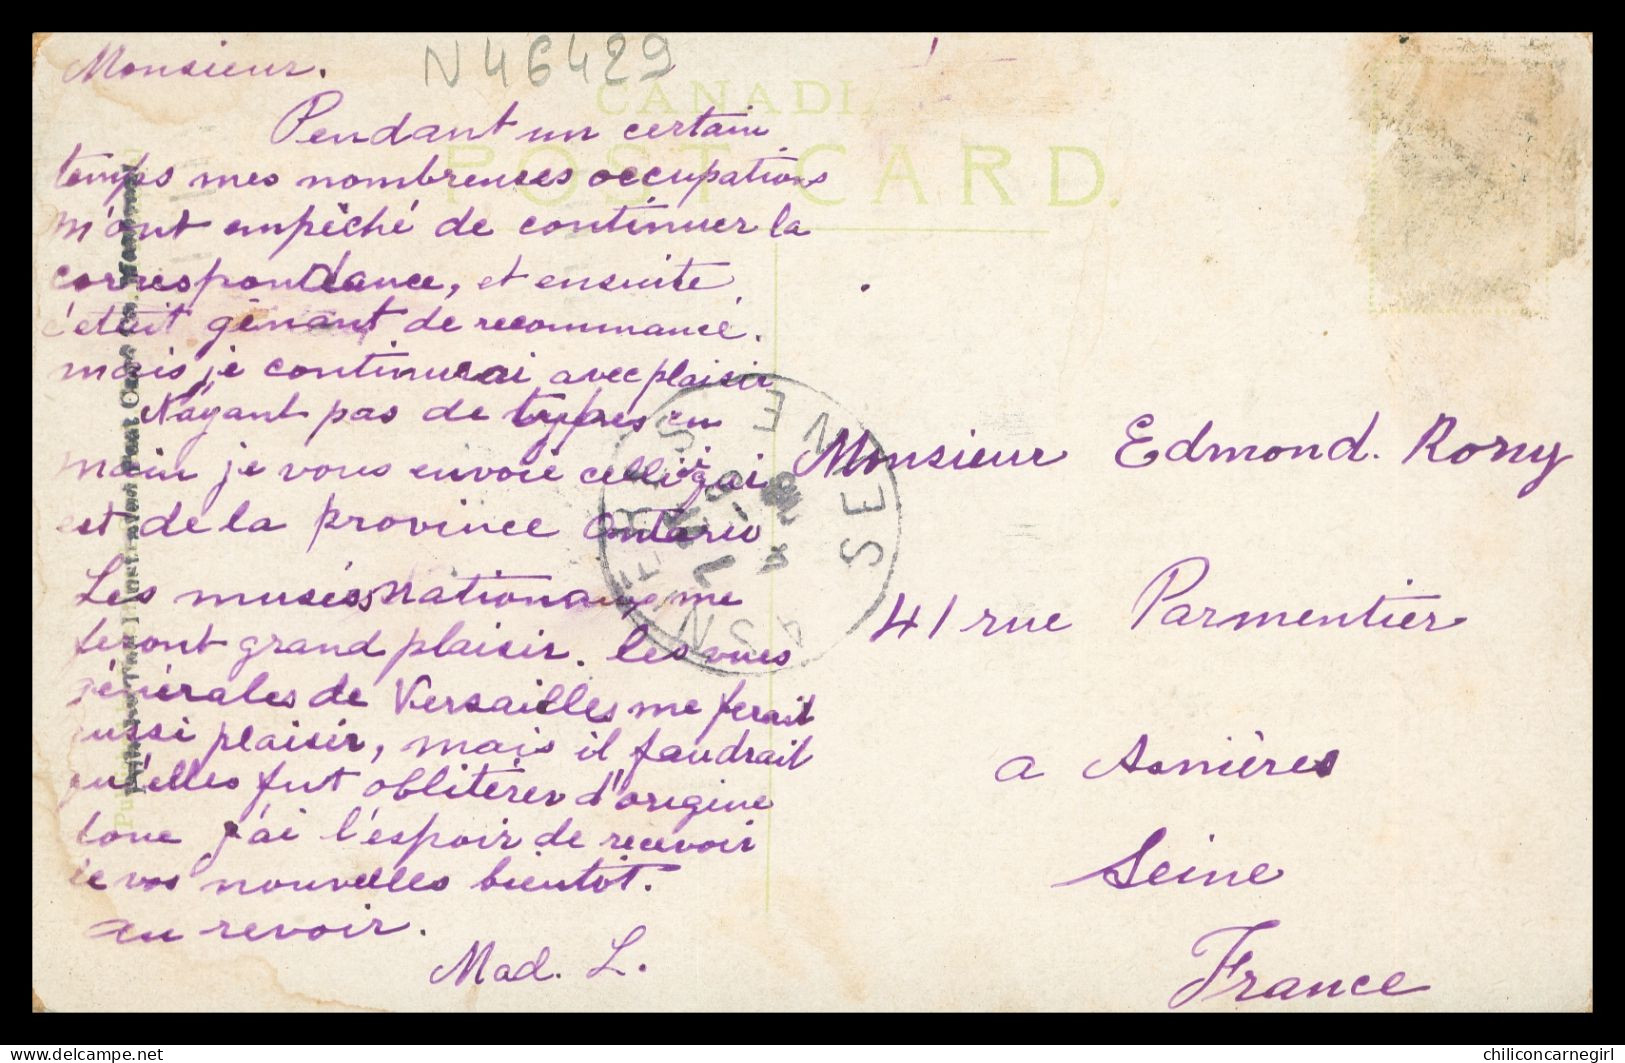 N46429
CANADIA
POST CARD.
Monsieur.
Pendant un certain
temps mes nombreuses occupations
m'ont empêché de continuer la
correspondance, et ensuite
c'etait gênant de recommancé.
mais je continuerai avec plaisir
N'ayant pas de types en
main je vous envoie celli çi
est de la province Ontario
Les musées Nationaux me
feront grand plaisir. les vues
générales de Versailles me ferait
aussi plaisir, mais il faudrait
qu'elles fut oblitérer d'origine
donc j'ai l'espoir de recevoir
de vos nouvelles bientôt.
au revoir.
Mad. L.
Monsieur Edmond. Rony
41 rue Parmentier
a Asnières
Seine
France
ASNIERES
SEINE
delcampe.net
chiliconcarnegirl